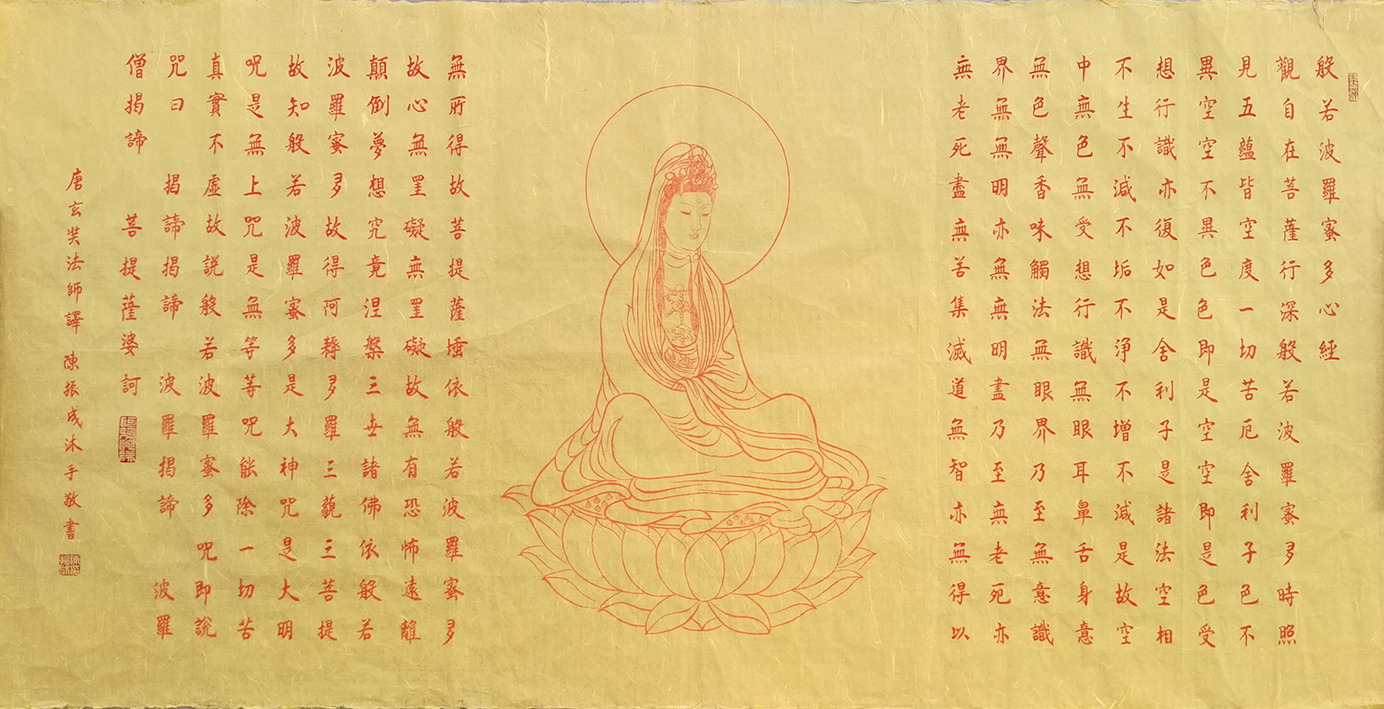 般若波羅蜜多心經
觀自在菩薩行深般若波羅蜜多時照
見五蘊皆空度一切苦厄舍利子色不
異空空不異色色即是空空即是色受
想行識亦復如是舍利子是諸法空相
不生不滅不垢不淨不增不減是故空
中無色無受想行識無眼耳鼻舌身意
無色聲香味觸法無眼界乃至無意識
界無無明亦無無明盡乃至無老死亦
無老死盡無苦集滅道無智亦無得以
無所得故菩提薩埵依般若波羅蜜多
故心無罣礙無罣礙故無有恐怖遠離
顛倒夢想究竟涅槃三世諸佛依般若
波羅蜜多故得阿耨多羅三藐三菩提
故知般若波羅蜜多是大神咒是大明
呪是無上咒是無等等呪能除一切苦
真實不虛故説般若波羅蜜多呪即說
咒曰 揭諦揭諦 波羅揭諦 波羅
僧揭諦 菩提薩婆訶
唐玄奘法師譯 陳振成沐手敬書